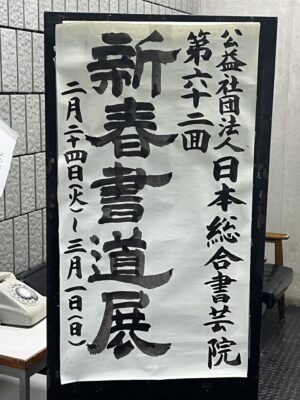 公益社団法人 日本総合書芸院
第六十二回
新春書道展
二月二十四日(火)～三月一日(日)